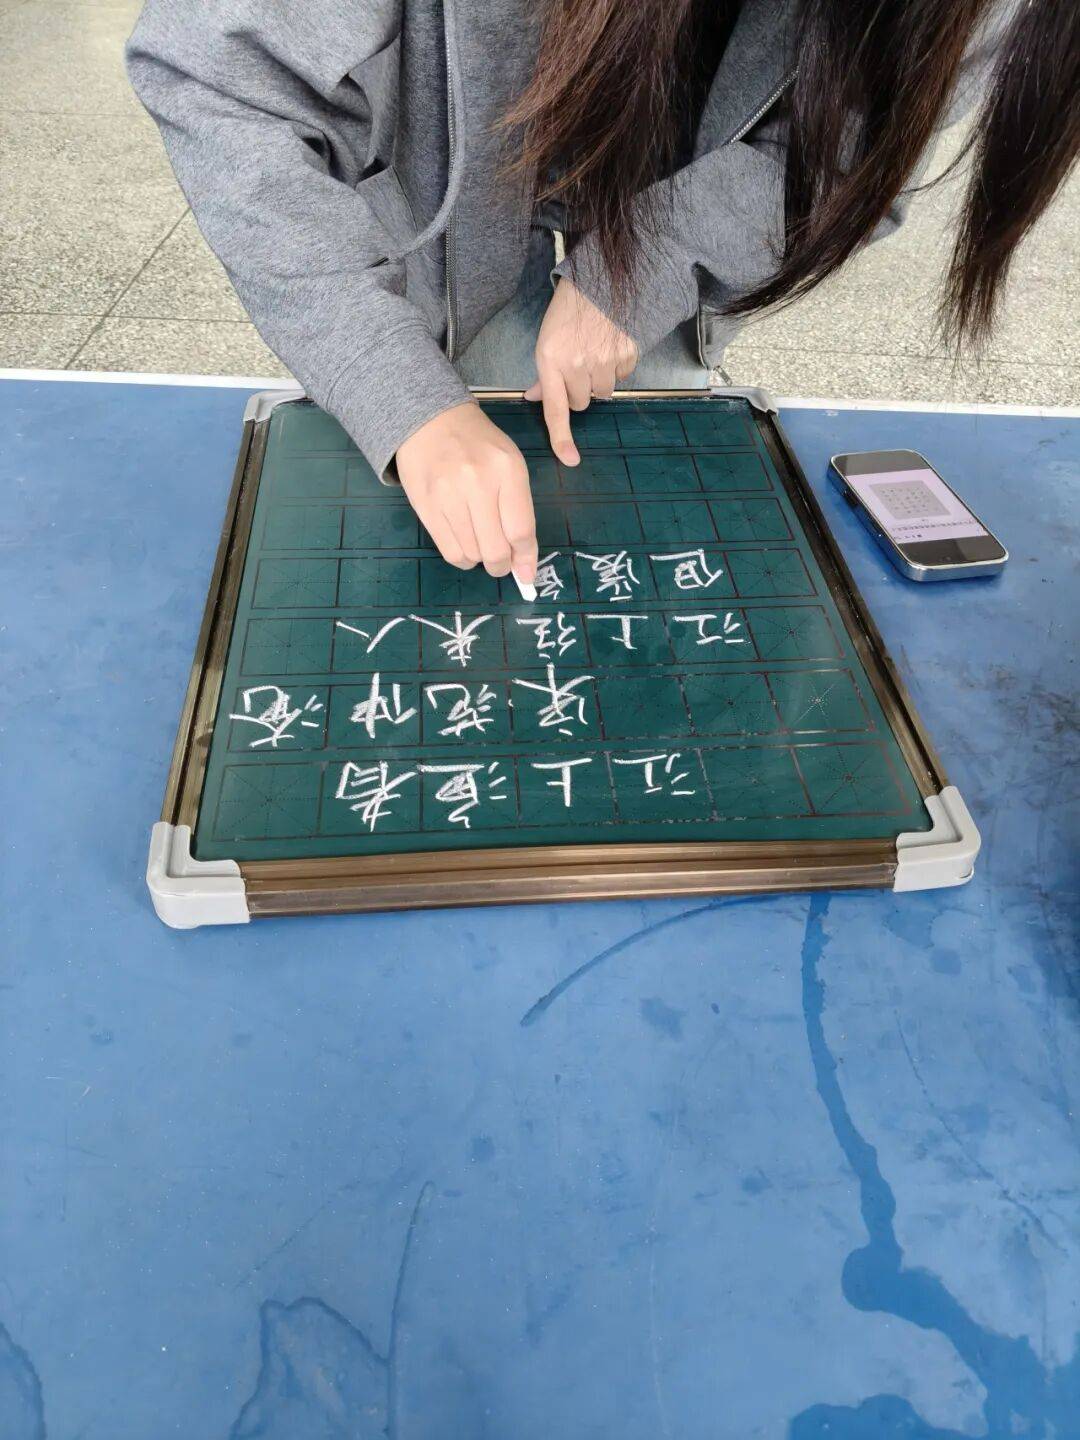 江上渔者
宋 范仲淹
江上往来人
但爱